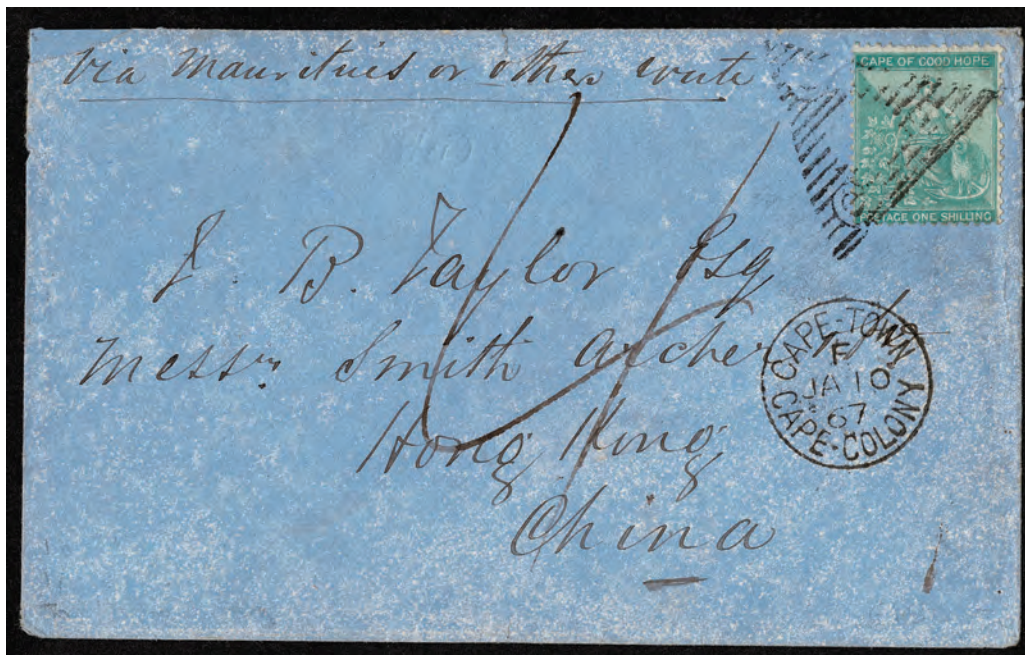 Via Mauritius or other route
CAPE OF GOOD HOPE
POSTAGE ONE SHILLING
J. B. Taylor Esq
Messrs Smith Archer & Co
Hong Kong
China
CAPE-TOWN
F
JA 10
67
CAPE-COLONY